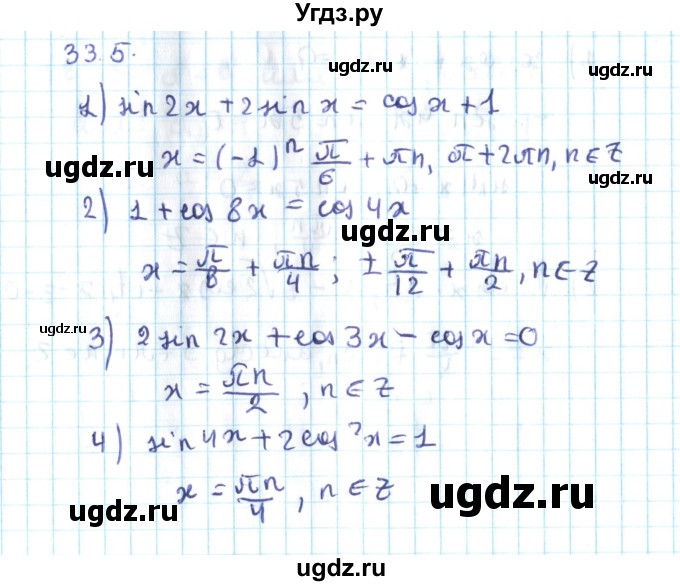 Угдз.ру
33.5.
ugdz.ru
1) sin 2x + 2 sin x = cos x + 1
ugdz.ru
x = (-1)ⁿ π/6 + πn, π + 2πn, n ∈ Z
ugdz.ru
2) 1 + cos 8x = cos 4x
ugdz.ru
x = π/8 + πn/4 ; ± π/12 + πn/2, n ∈ Z
ugdz.ru
ugdz.ru
3) 2 sin 2x + cos 3x - cos x = 0
ugdz.ru
x = πn/2, n ∈ Z
ugdz.ru
4) sin 4x + 2 cos² x = 1
ugdz.ru
x = πn/4, n ∈ Z
ugdz.ru
ugdz.ru
ugdz.ru